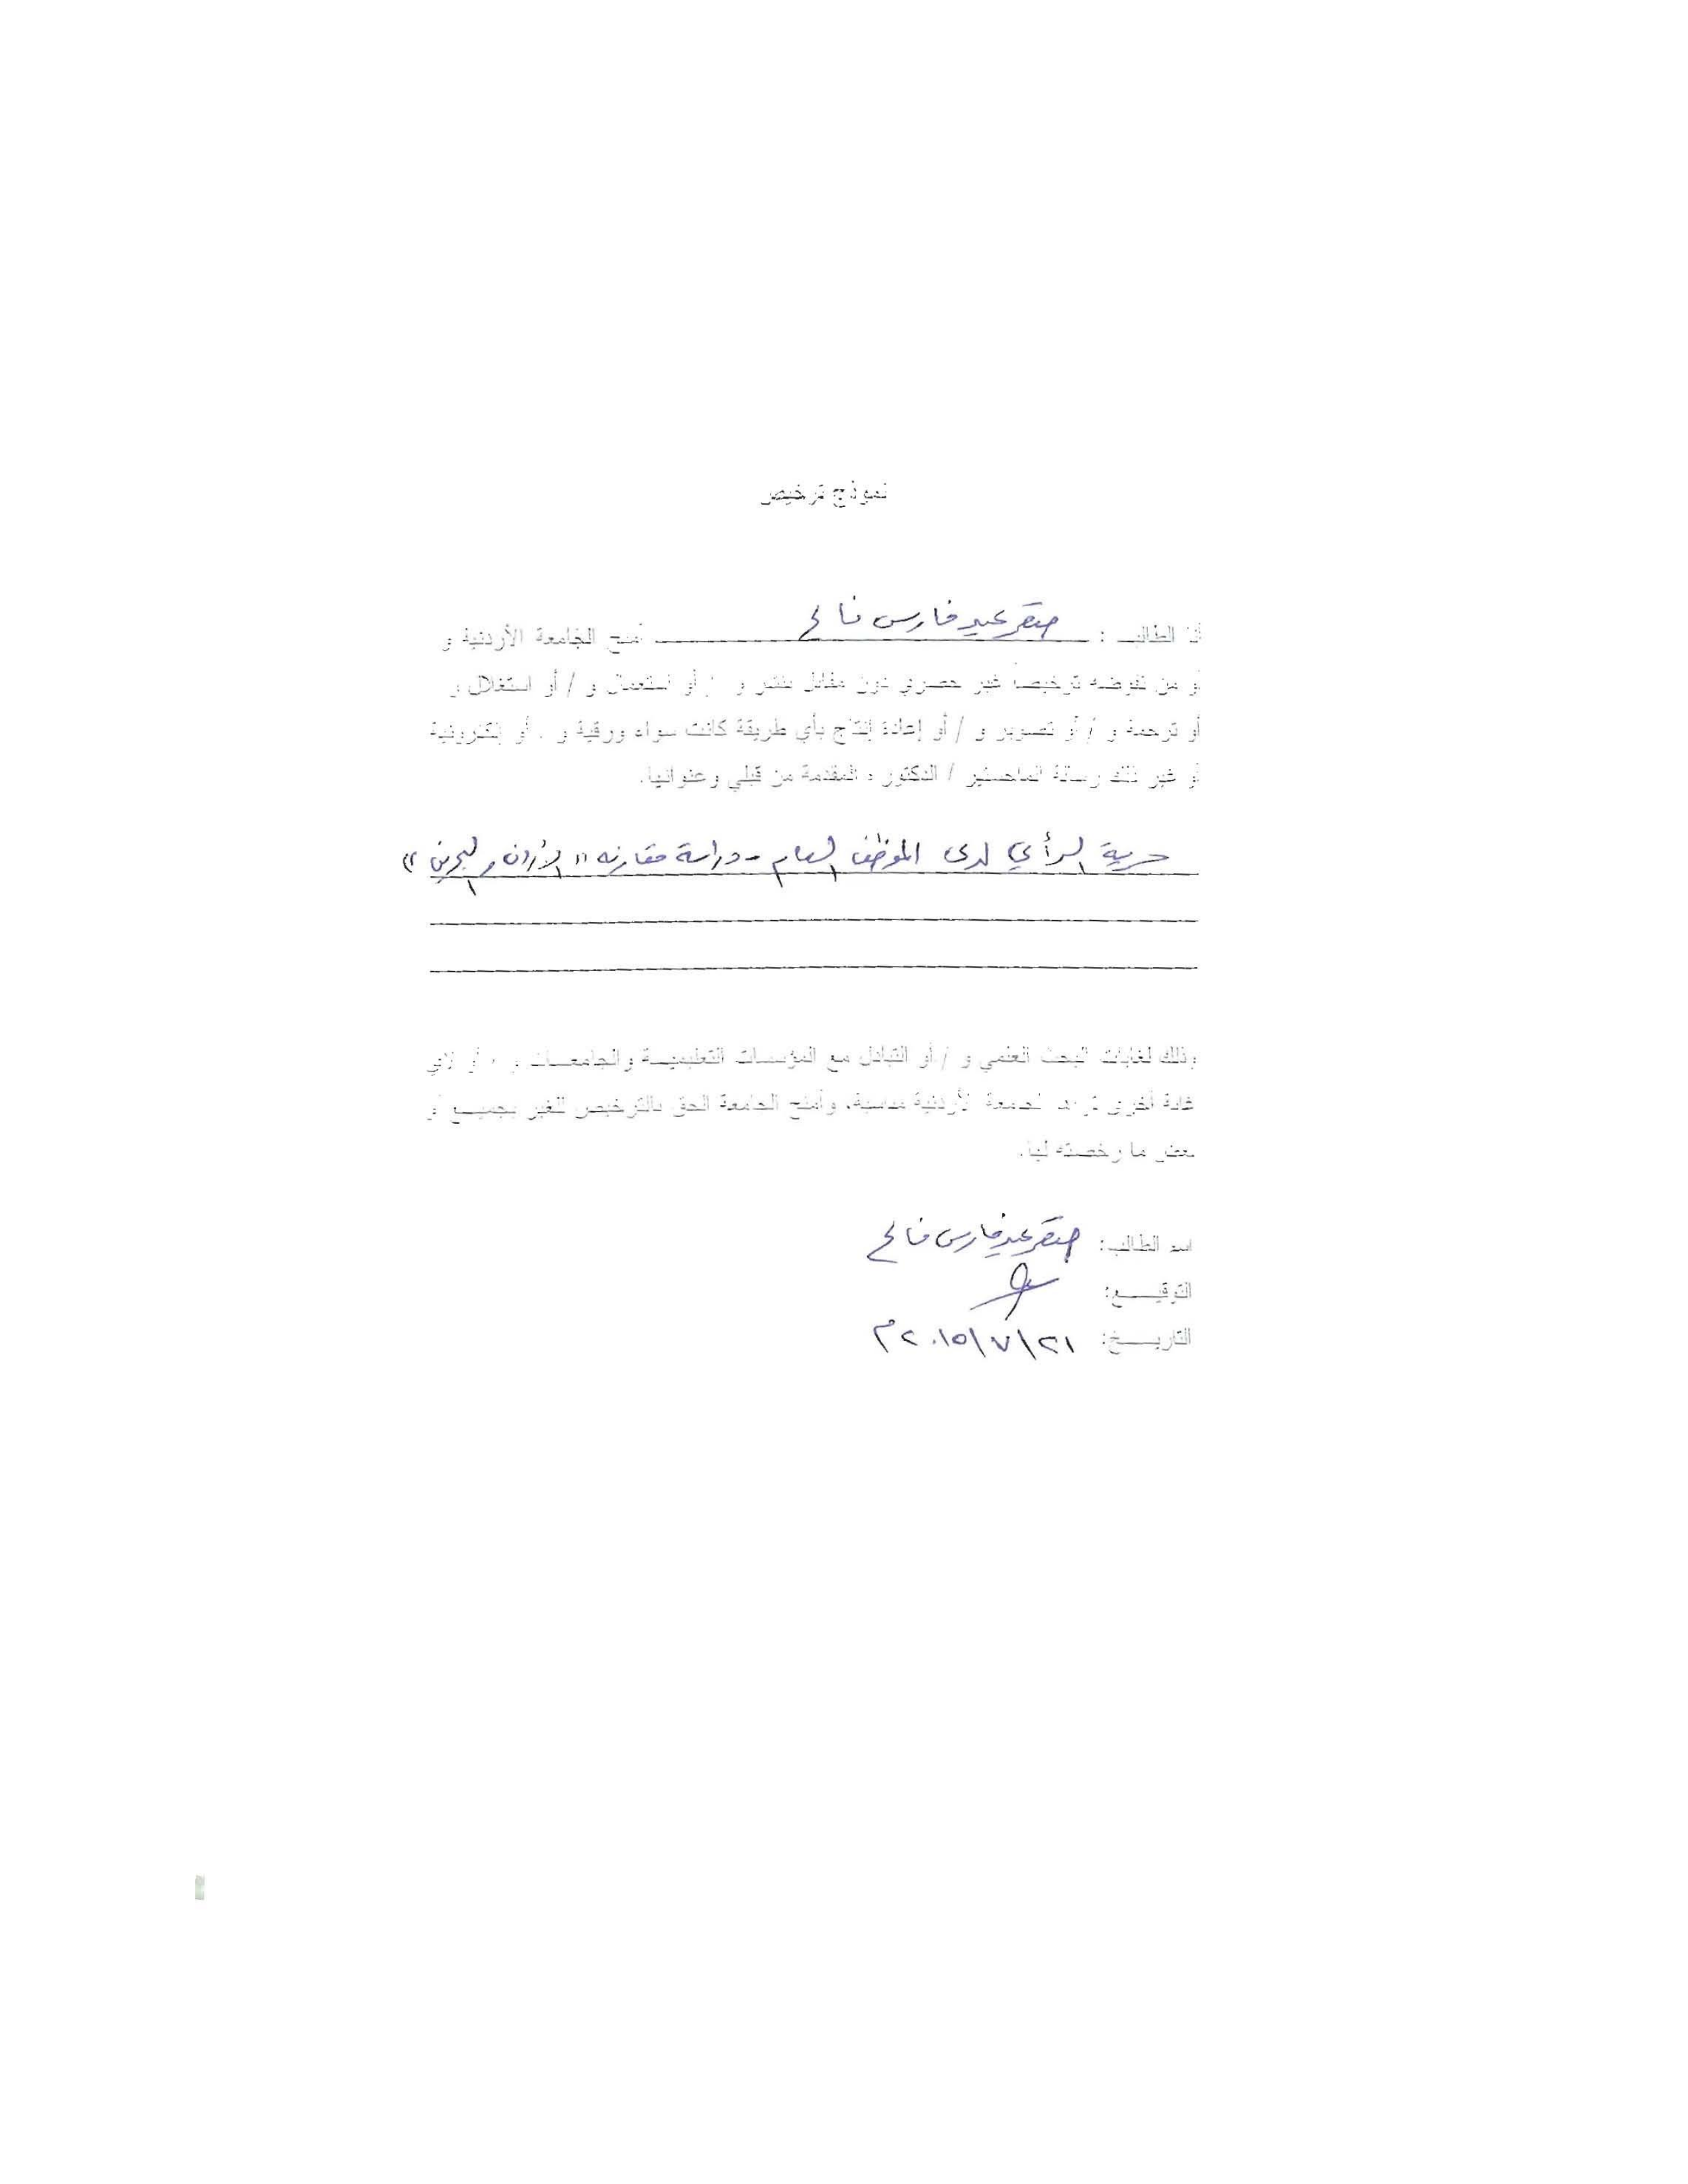 نموذج ترخيص
أنا الطالب : صقر عيد فارس فالح أمنح الجامعة الأردنية و
أو من تفوضه ترخيصاً غير حصري دون مقابل بنشر و / أو استعمال و / أو استغلال و
أو ترجمة و / أو تصوير و / أو إعادة إنتاج بأي طريقة كانت سواء ورقية و / أو إلكترونية
أو غير ذلك رسالة الماجستير / الدكتوراه المقدمة من قبلي وعنوانها.
حرية الرأي لدى الموظف العام - دراسة مقارنه "الأردن والبحرين"
وذلك لغايات البحث العلمي و / أو التبادل مع المؤسسات التعليمية والجامعات و / أو لأي
غاية أخرى تراها الجامعة الأردنية مناسبة، وأمنح الجامعة الحق بالترخيص للغير بجميع أو
بعض ما رخصته لها.
اسم الطالب: صقر عيد فارس فالح
التوقيع:
التاريخ: ٢٠١٥/٧/٢١م